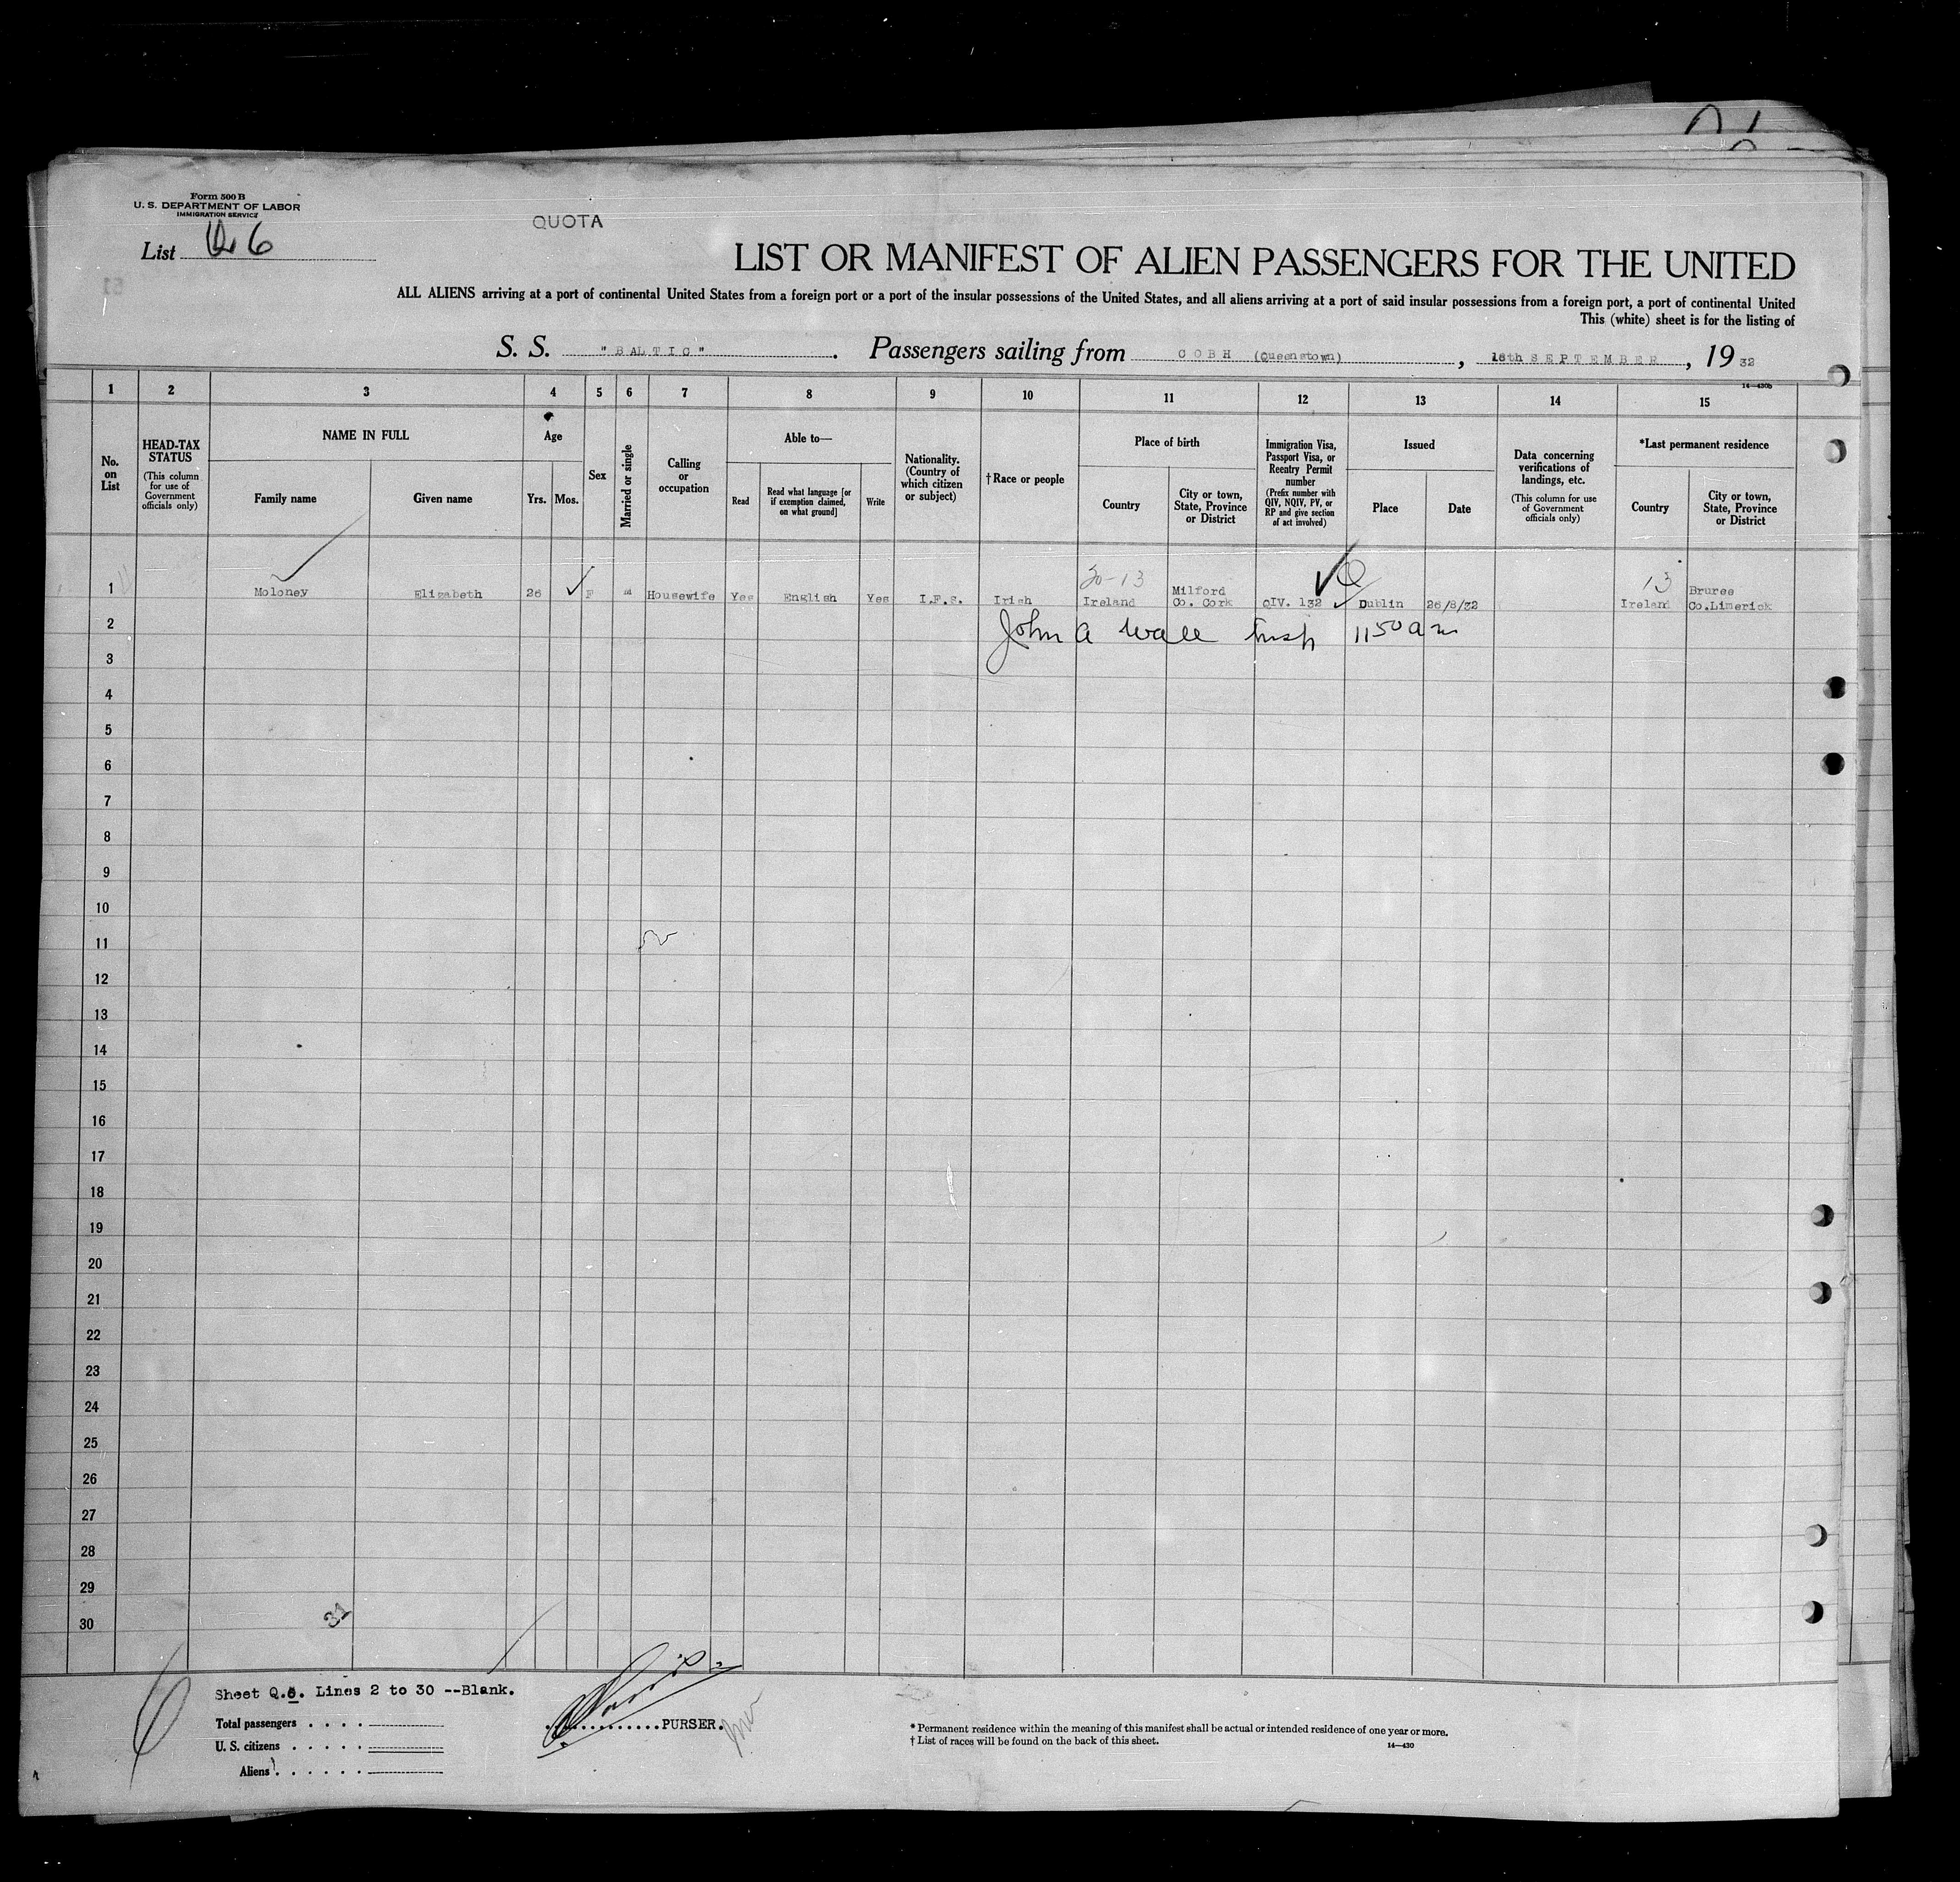 Form 500 B
U. S. DEPARTMENT OF LABOR
IMMIGRATION SERVICE
QUOTA
List 6
LIST OR MANIFEST OF ALIEN PASSENGERS FOR THE UNITED
ALL ALIENS arriving at a port of continental United States from a foreign port or a port of the insular possessions of the United States, and all aliens arriving at a port of said insular possessions from a foreign port, a port of continental United
This (white) sheet is for the listing of
S. S. "BALTIC". Passengers sailing from COBH (Queenstown), 18th SEPTEMBER, 1932
14—430b
1 2 3 4 5 6 7 8 9 10 11 12 13 14 15
No. on List
HEAD-TAX STATUS
(This column for use of Government officials only)
NAME IN FULL
Family name
Given name
Age
Yrs. Mos.
Sex
Married or single
Calling or occupation
Able to—
Read
Read what language [or if exemption claimed, on what ground]
Write
Nationality. (Country of which citizen or subject)
†Race or people
Place of birth
Country
City or town, State, Province or District
Immigration Visa, Passport Visa, or Reentry Permit number
(Prefix number with QIV, NQIV, PV, or RP and give section of act involved)
Issued
Place
Date
Data concerning verifications of landings, etc.
(This column for use of Government officials only)
*Last permanent residence
Country
City or town, State, Province or District
30-13
13
1 Moloney Elizabeth 26 F M Housewife Yes English Yes I.F.S. Irish Ireland Milford Co. Cork QIV. 132 Dublin 26/8/32 Ireland Bruree Co.Limerick
2 John A Wall Insp 1150 am
3
4
5
6
7
8
9
10
11
12
13
14
15
16
17
18
19
20
21
22
23
24
25
26
27
28
29
30
6
Sheet Q.6. Lines 2 to 30 --Blank.
Total passengers
U. S. citizens
Aliens
PURSER.
* Permanent residence within the meaning of this manifest shall be actual or intended residence of one year or more.
† List of races will be found on the back of this sheet.
14—430